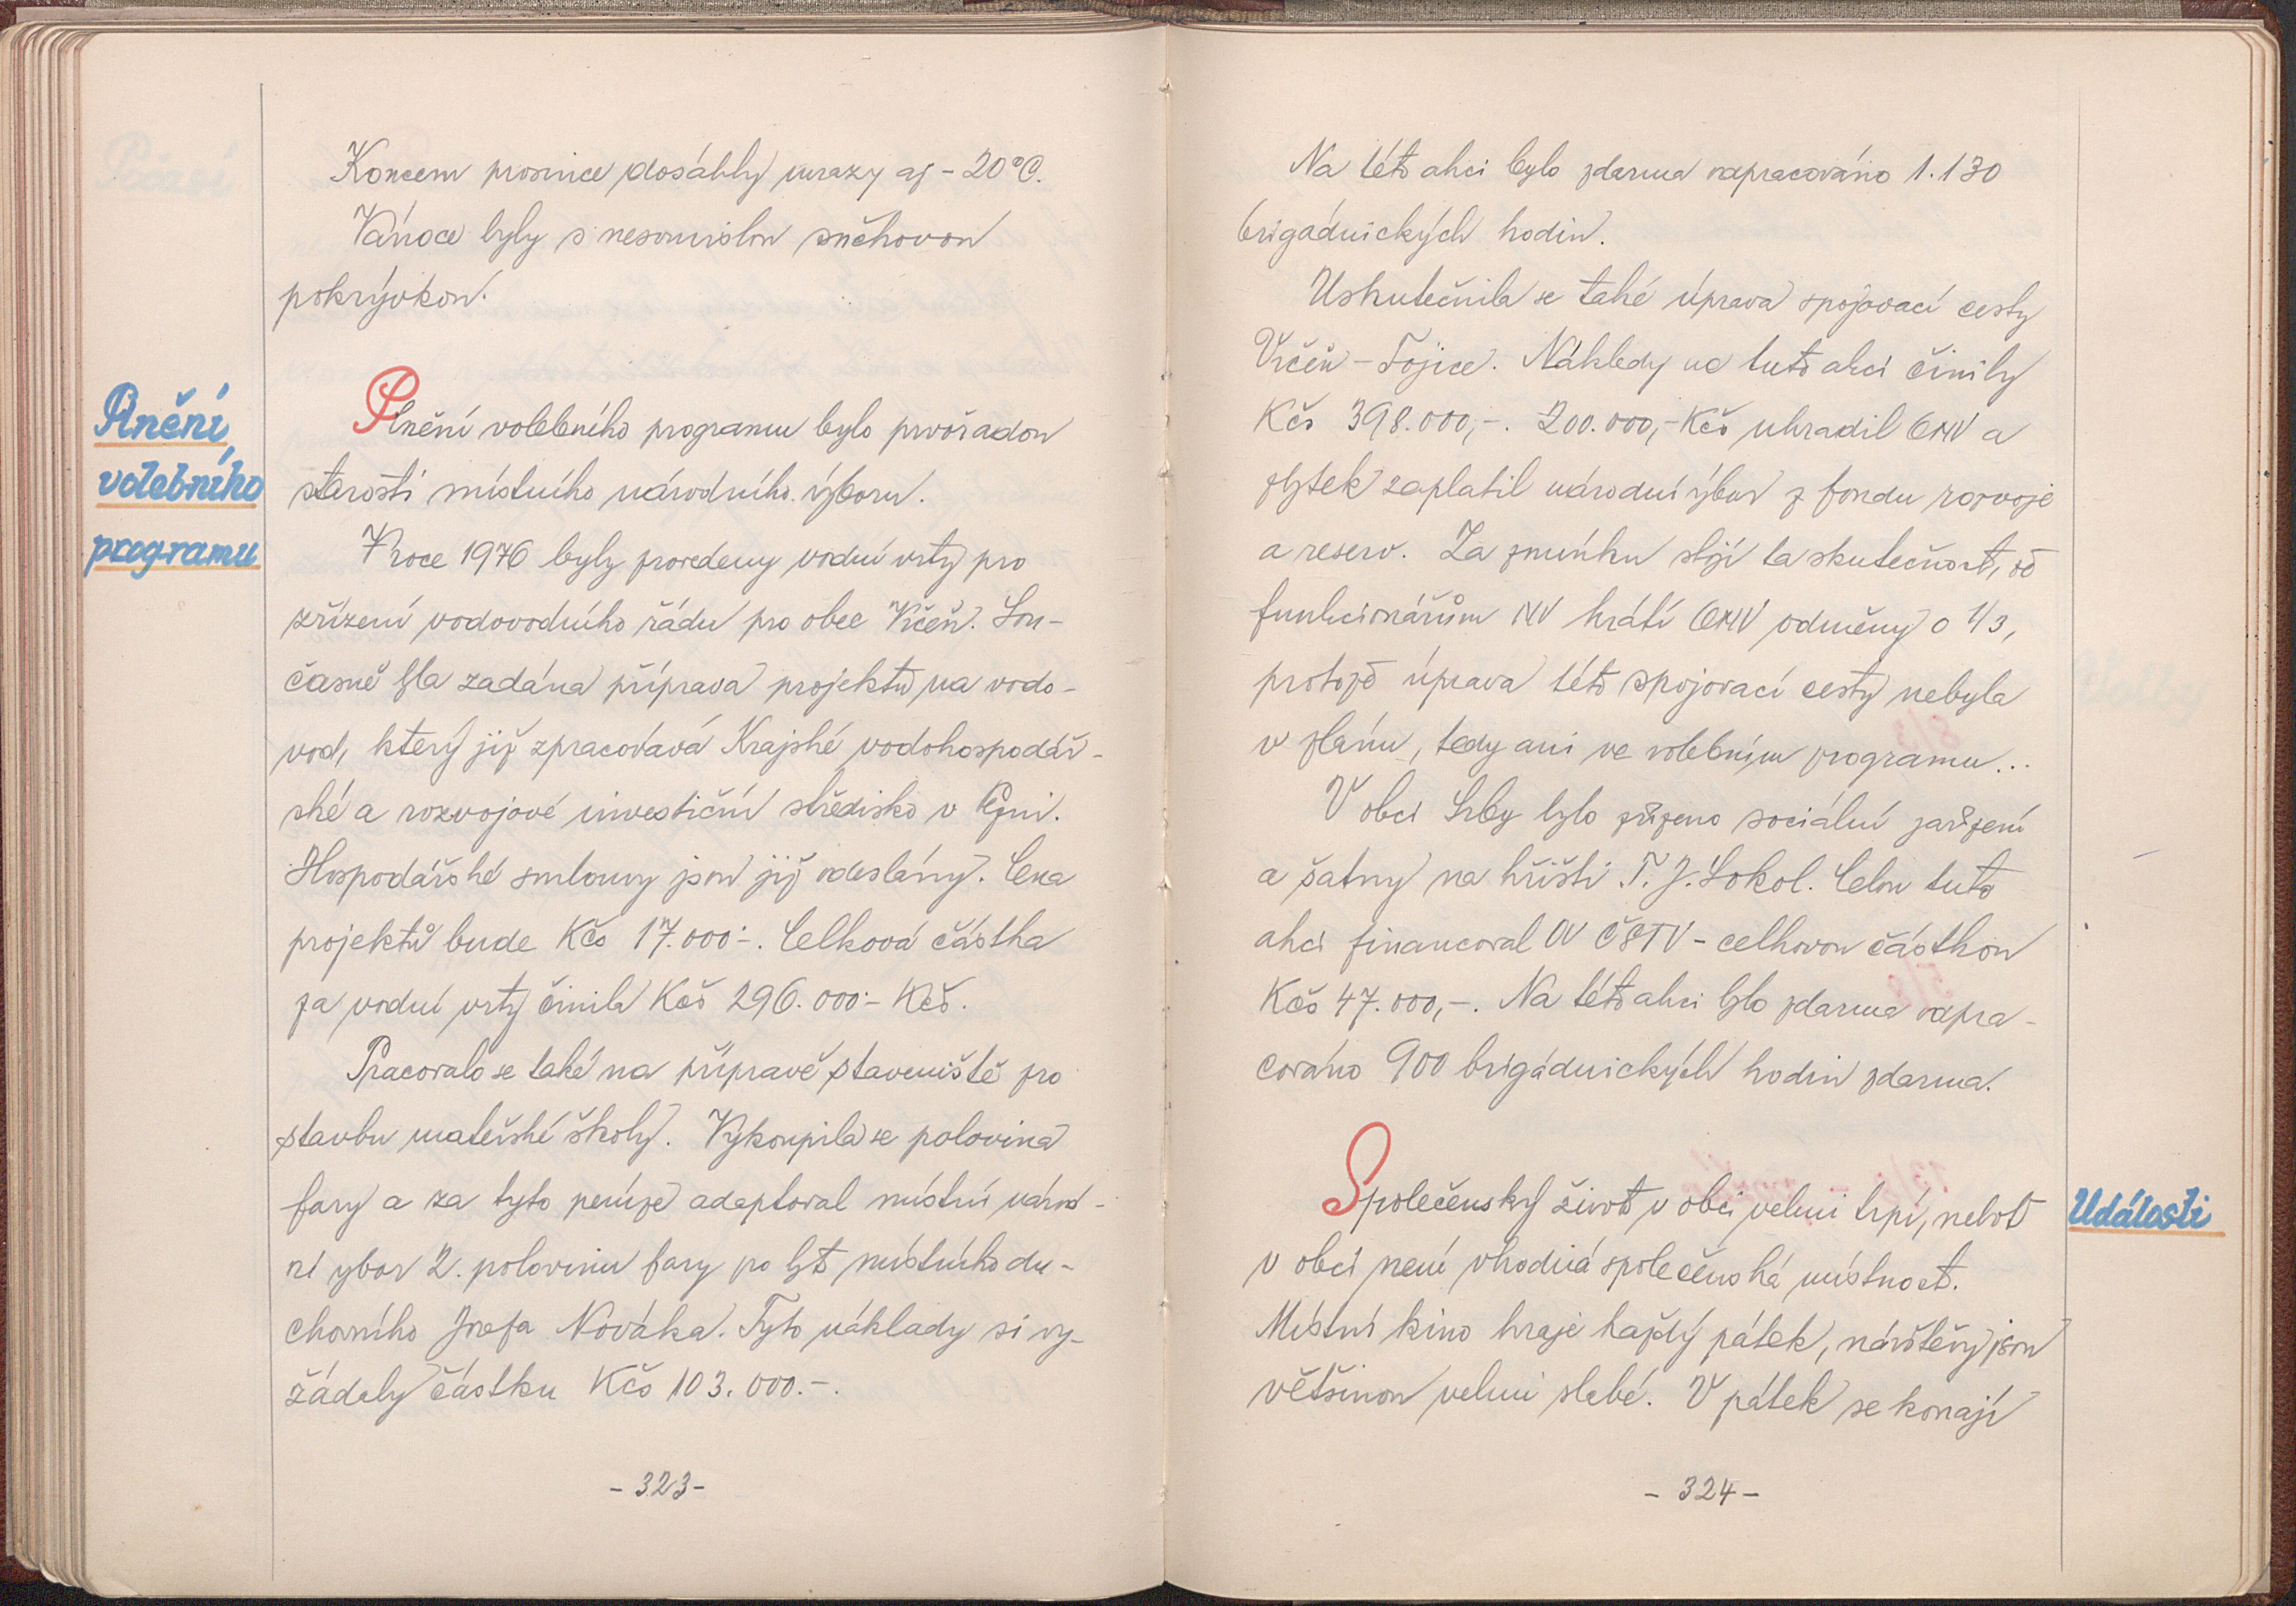 Koncem prosince dosáhly mrazy až - 20°C.
Vánoce byly s nesouvislou sněhovou
pokrývkou.
Plnění
volebního
programu
Plnění volebního programu bylo prvořadou
starostí místního národního výboru.
V roce 1976 byly provedeny vodní vrty pro
zřízení vodovodního řádu pro obec Vrčeň. Sou-
časně byla zadána příprava projektů na vodo-
vod, který již zpracovává Krajské vodohospodář-
ské a rozvojové investiční středisko v Plzni.
Hospodářské smlouvy jsou již odeslány. Cena
projektů bude Kčs 17.000.-. Celková částka
za vodní vrty činila Kčs 296.000.- Kčs.
Pracovalo se také na přípravě staveniště pro
stavbu mateřské školy. Vykoupila se polovina
fary a za tyto peníze adaptoval místní národ-
ní výbor 2. polovinu fary po byt místního du-
chovního Josefa Nováka. Tyto náklady si vy-
žádaly částku Kčs 103.000.-.
- 323 -
Na této akci bylo zdarma odpracováno 1.130
brigádnických hodin.
Uskutečnila se také úprava spojovací cesty
Vrčeň - Tojice. Náklady na tuto akci činily
Kčs 398.000,-. 200.000,- Kčs uhradil ONV a
zbytek zaplatil národní výbor z fondu rozvoje
a reserv. Za zmínku stojí ta skutečnost, že
funkcionářům NV krátí ONV odměny o 1/3,
protože úprava této spojovací cesty nebyla
v plánu, tedy ani ve volebním programu...
V obci Srby bylo zřízeno sociální zařízení
a šatny na hřišti T.J. Sokol. Celou tuto
akci financoval OV ČSTV - celkovou částkou
Kčs 47.000,-. Na této akci bylo zdarma odpra-
cováno 900 brigádnických hodin zdarma.
Události
Společenský život v obci velmi trpí, neboť
v obci není vhodná společenská místnost.
Místní kino hraje každý pátek, návštěvy jsou
většinou velmi slabé. V pátek se konají
- 324 -